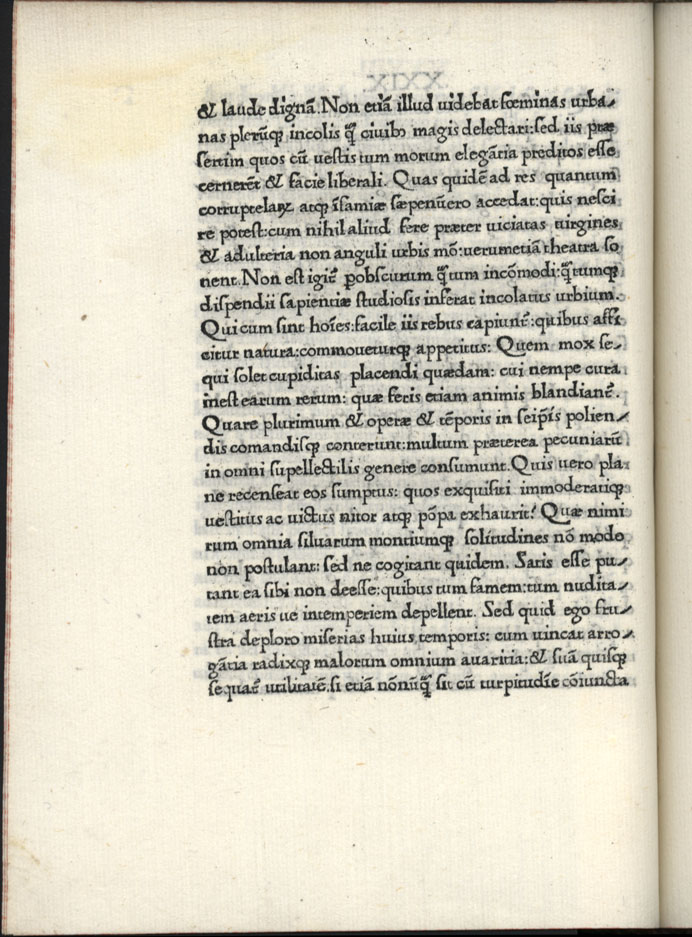 & laude dignā. Non etiā illud uidebat fœminas urba-
nas plerūq; incolis q̃ ciuibꝰ magis delectari: sed iis præ
sertim quos cū uestis tum morum elegātia preditos esse
cernerēt & facie liberali. Quas quidē ad res quantum
corruptelaꝝ atq; īfamiæ sæpenūero accedat: quis nesci
re potest: cum nihil aliud fere præter uiciatas uirgines
& adulteria non anguli urbis mō: uerumetiā theatra so
nent. Non est igit̃ ꝑobscurum q̃tum incōmodi: q̃tumq;
dispendii sapientiæ studiosis inferat incolatus urbium.
Qui cum sint hoīes: facile iis rebus capiunt̃: quibus affi
citur natura: commoueturq; appetitus: Quem mox se-
qui solet cupiditas placendi quædam: cui nempe cura
inest earum rerum: quæ feris etiam animis blandiant̃.
Quare plurimum & operæ & tēporis in seip̄is polien-
dis comandisq; conterunt: multum præterea pecuniarū
in omni supellectilis genere consumunt. Quis uero pla-
ne recenseat eos sumptus: quos exquisiti immoderatiq;
uestitus ac uictus nitor atq; pōpa exhaurit? Quæ nimi
rum omnia siluarum montiumq; solitudines nō modo
non postulant: sed ne cogitant quidem. Satis esse pu-
tant ea sibi non deesse: quibus tum famem: tum nudita-
tem aeris ue intemperiem depellent. Sed quid ego fru-
stra deploro miserias huius temporis: cum uincat arro-
gātia radixq; malorum omnium auaritia: & suā quisq;
sequat̃ utilitatē. si etiā nōnūq̃ sit cū turpitudīe cōiuncta